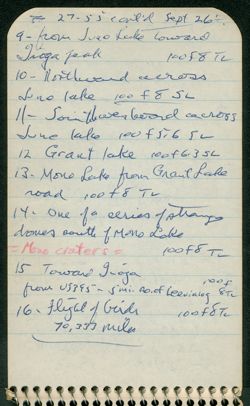 = 27-55 cont'd Sept 26
9- from June Lake toward
Tioga peak 100 f 8 TL
10- Northward across
June lake 100 f 8 SL
11- Southwestward across
June lake 100 f 5.6 SL
12 Grant lake 100 f 6.3 SL
13- Mono Lake from Grant Lake
road 100 f 8 TL
14- One of a series of strange
domes south of Mono Lake
= Mono craters = 100 f 8 TL
15 Toward Tioga 100 f
from US395 - 5 mi. so. of Leevining 8 TL
16- Flight of birds 100 f 8 TL
70,337 miles